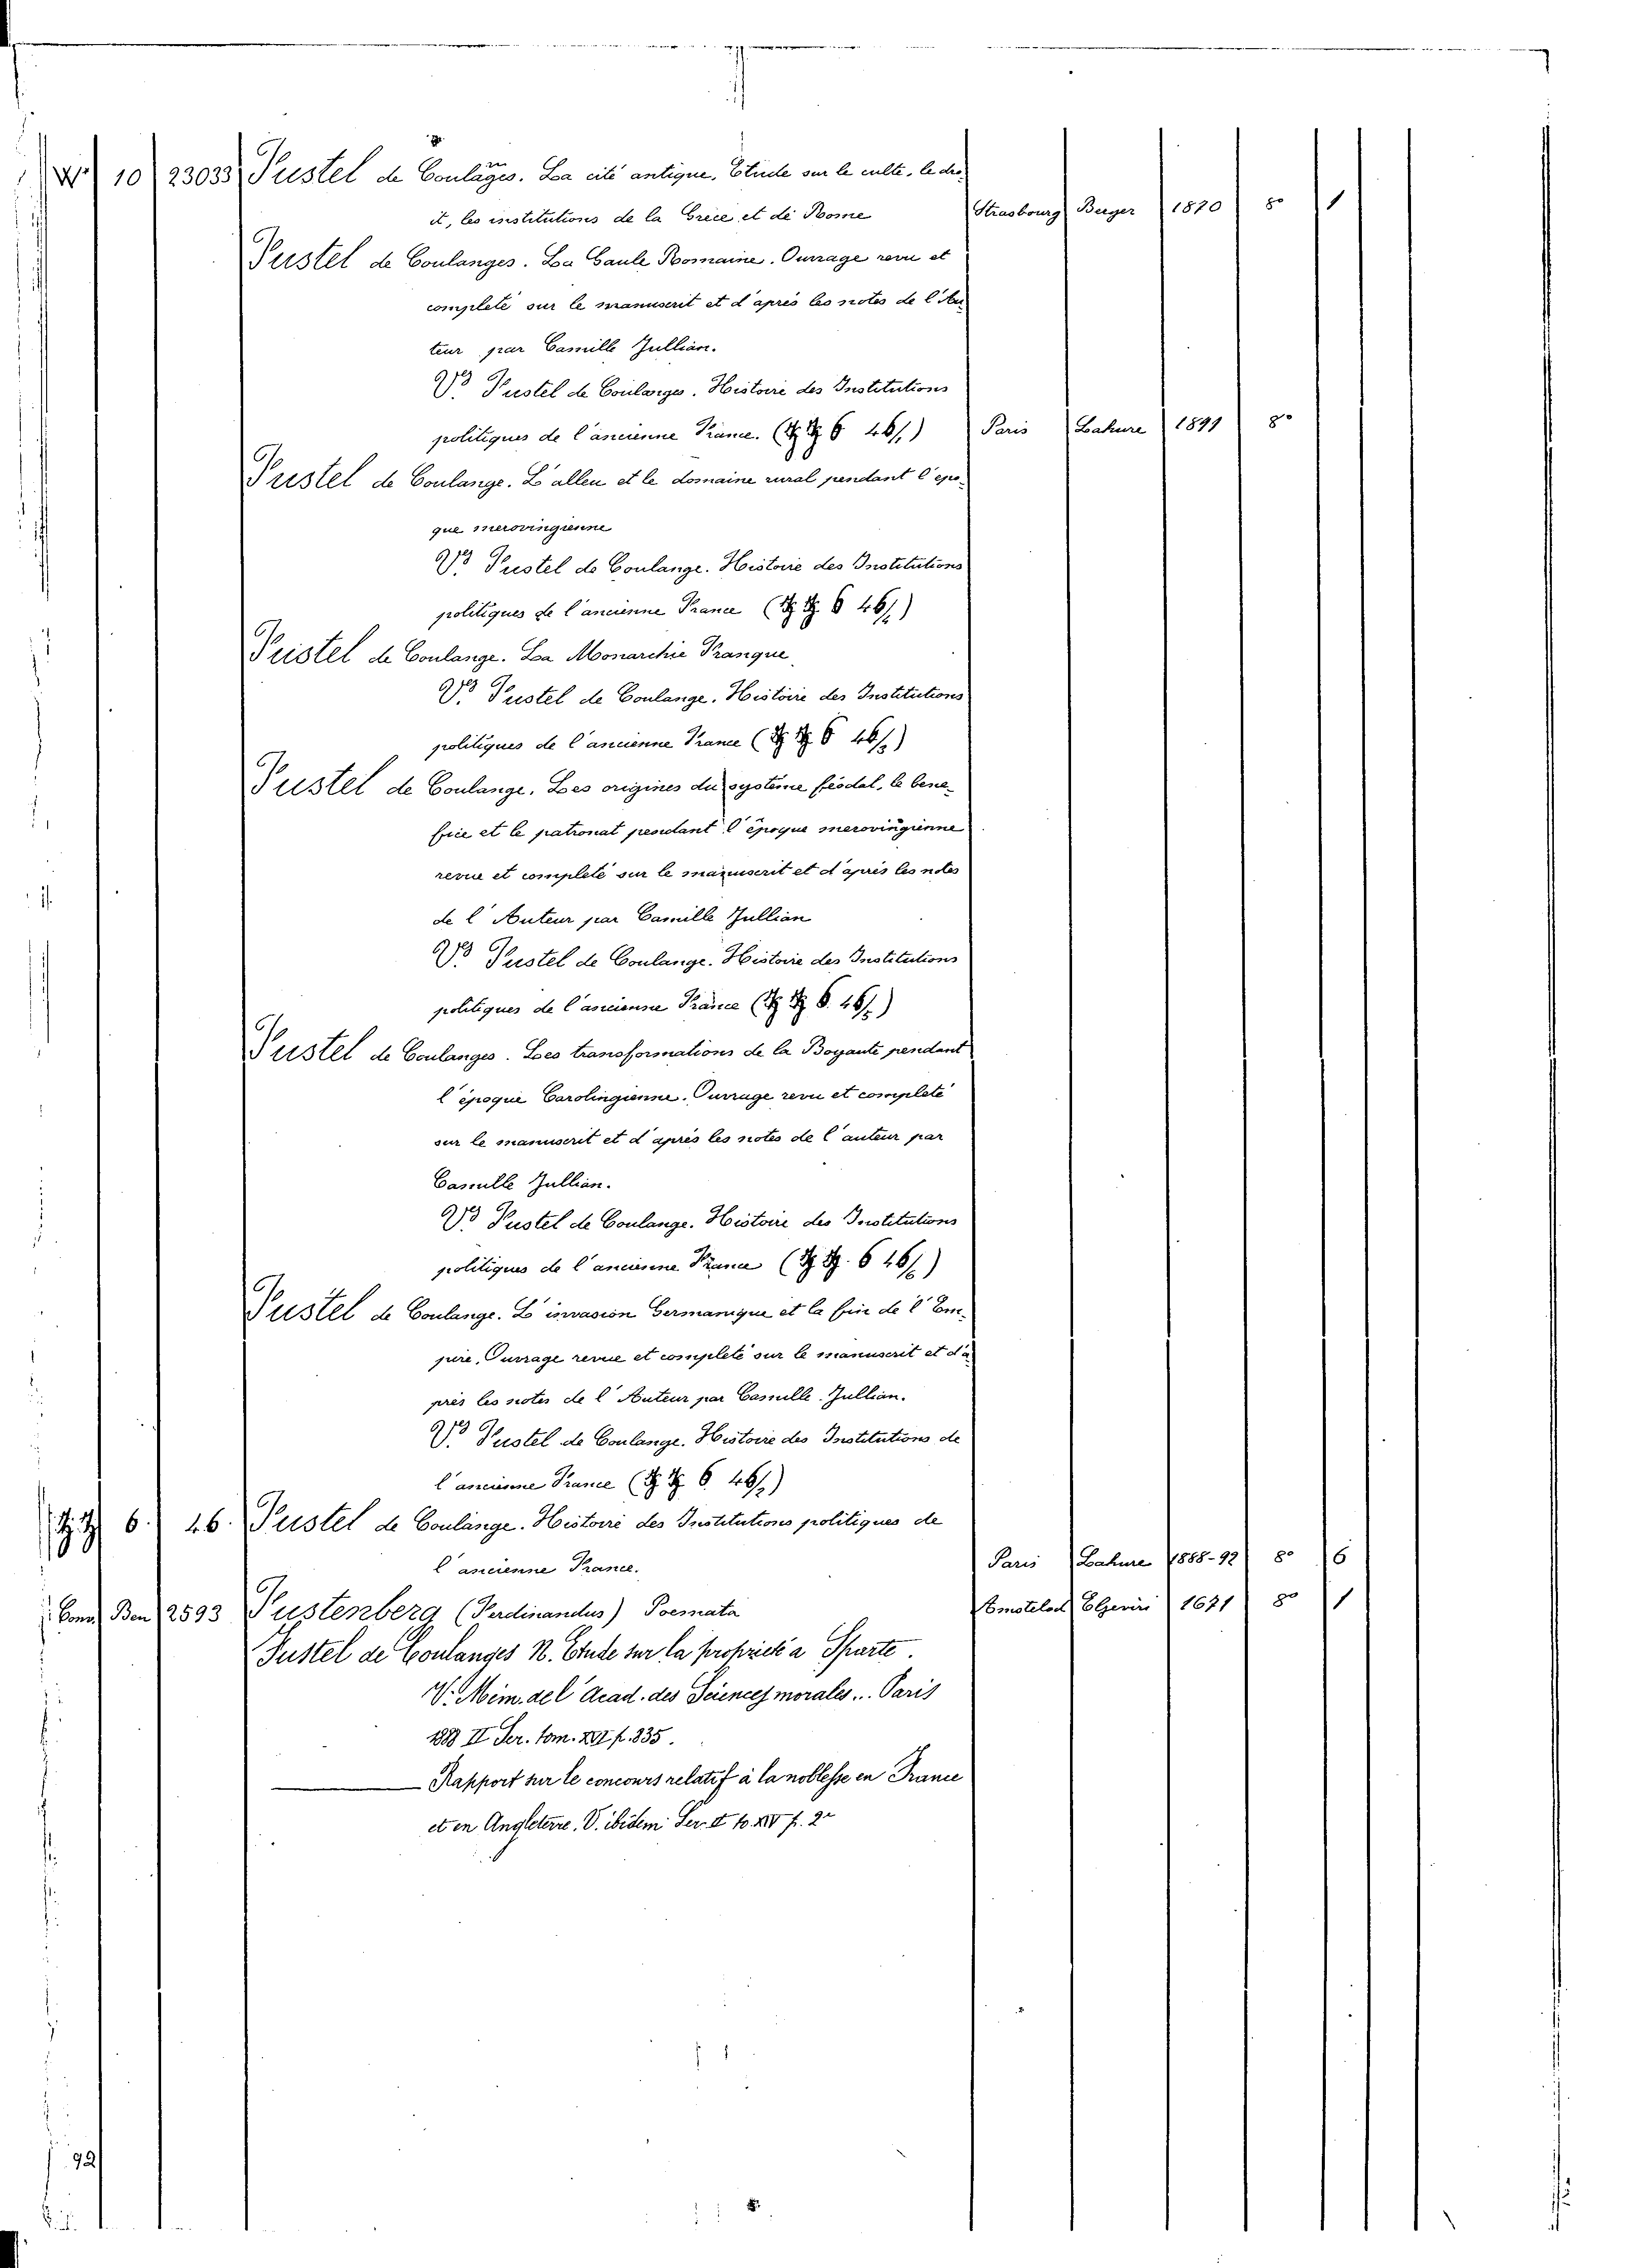 W 10 23033 Fustel de Coulages. La cité antique. Etude sur le culte, le dro
it, les institutions de la Grèce et de Rome Strasbourg Berger 1870 8º 1
Fustel de Coulanges. La Gaule Romaine. Ouvrage revu et
completé sur le manuscrit et d'après les notes de l'Au
teur par Camille Jullian.
Vº Fustel de Coulanges. Histoire des Institutions
politiques de l'ancienne France. ( 6 46/6) Paris Lahure 1891 8º
Fustel de Coulange. L'alleu et le domaine rural pendant l'epo-
que merovingienne
Vº Fustel de Coulange. Histoire des Institutions
politiques de l'ancienne France ( 6 46/6)
Fustel de Coulange. La Monarchie Franque.
Vº Fustel de Coulange. Histoire des Institutions
politiques de l'ancienne France ( 6 46/6)
Fustel de Coulange. Les origines du système féodal, le bene-
fice et le patronat pendant l'époque merovingienne
revue et completé sur le manuscrit et d'après les notes
de l'Auteur par Camille Jullian
Vº Fustel de Coulange. Histoire des Institutions
politiques de l'ancienne France ( 6. 46/6)
Fustel de Coulanges. Les transformations de la Boyauté pendant
l'époque Carolingienne. Ouvrage revu et completé
sur le manuscrit et d'après les notes de l'auteur par
Camille Jullian.
Vº Fustel de Coulange. Histoire des Institutions
politiques de l'ancienne France ( 6 46/6)
Fustel de Coulange. L'invasion Germanique et la fin de l'Em-
pire, Ouvrage revue et completé sur le manuscrit et d'a
près les notes de l'Auteur par Camille Jullian.
Vº Fustel de Coulange. Histoire des Institutions de
l'ancienne France ( 6. 46/6)
6. 46. Fustel de Coulange. Histoire des Institutions politiques de
l'ancienne France. Paris Lahure 1888-92 8º 6
Conv Ben 2593 Fustenberg (Ferdinandus) Poemata Amstelod Elzevirii 1671 8º 1
Fustel de Coulanges N. Etude sur la proprieté a Sparte.
V. Mém. del'Acad. des Sciences morales... Paris
1888 II Ser. tom. XVI p. 835.
Rapport sur le concours relatif à la noblesse en France
et en Angleterre. V. ibidem Ser. II to. XIV p. 2
92